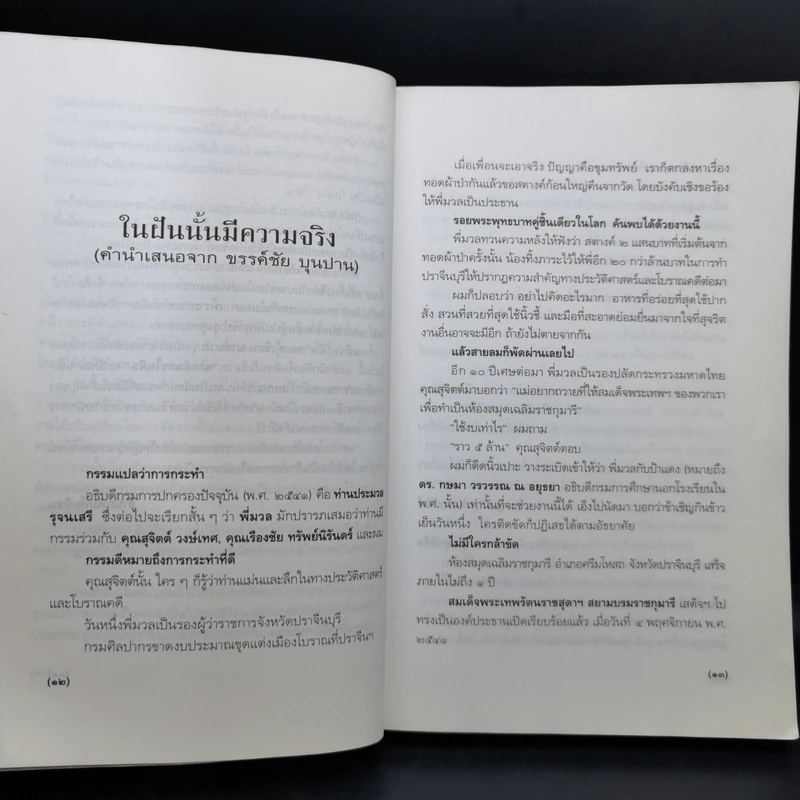 ในฝันนั้นมีความจริง
(คำนำเสนอจาก ขรรค์ชัย บุนปาน)
กรรมแปลว่าการกระทำ
อธิบดีกรมการปกครองปัจจุบัน (พ.ศ. ๒๕๔๑) คือ ท่านประมวล
รุจนเสรี ซึ่งต่อไปจะเรียกสั้น ๆ ว่า พี่มวล มักปรารภเสมอว่าท่านมี
กรรมร่วมกับ คุณสุจิตต์ วงษ์เทศ, คุณเรืองชัย ทรัพย์นิรันดร์ และผม
กรรมดีหมายถึงการกระทำที่ดี
คุณสุจิตต์นั้น ใคร ๆ ก็รู้ว่าท่านแม่นและลึกในทางประวัติศาสตร์
และโบราณคดี
วันหนึ่งพี่มวลเป็นรองผู้ว่าราชการจังหวัดปราจีนบุรี
กรมศิลปากรขาดงบประมาณขุดแต่งเมืองโบราณที่ปราจีนฯ
(๑๒)
เมื่อเพื่อนจะเอาจริง ปัญญาคือขุมทรัพย์ เราก็ตกลงหาเรื่อง
ทอดผ้าป่ากันแล้วขอสตางค์ก้อนใหญ่คืนจากวัด โดยบังคับเชิงขอร้อง
ให้พี่มวลเป็นประธาน
รอยพระพุทธบาทคู่ชิ้นเดียวในโลก ค้นพบได้ด้วยงานนี้
พี่มวลทวนความหลังให้ฟังว่า สตางค์ ๒ แสนบาทที่เริ่มต้นจาก
ทอดผ้าป่าครั้งนั้น น้องทิ้งภาระไว้ให้พี่อีก ๒๐ กว่าล้านบาทในการทำ
ปราจีนบุรีให้ปรากฏความสำคัญทางประวัติศาสตร์และโบราณคดีต่อมา
ผมก็ปลอบว่า อย่าไปคิดอะไรมาก อาหารที่อร่อยที่สุดใช้ปาก
สั่ง สวนที่สวยที่สุดใช้นิ้วชี้ และมือที่สะอาดย่อมยื่นมาจากใจที่สุจริต
งานอื่นอาจจะมีอีก ถ้ายังไม่ตายจากกัน
แล้วสายลมก็พัดผ่านเลยไป
อีก ๑๐ ปีเศษต่อมา พี่มวลเป็นรองปลัดกระทรวงมหาดไทย
คุณสุจิตต์มาบอกว่า "แม่อยากถวายที่ให้สมเด็จพระเทพฯ ของพวกเรา
เพื่อทำเป็นห้องสมุดเฉลิมราชกุมารี"
"ใช้งบเท่าไร" ผมถาม
"ราว ๕ ล้าน" คุณสุจิตต์ตอบ
ผมก็ดีดนิ้วเปาะ วางระเบิดเข้าให้ว่า พี่มวลกับป้าแดง (หมายถึง
ดร. กษมา วรวรรณ ณ อยุธยา อธิบดีกรมการศึกษานอกโรงเรียนใน
พ.ศ. นั้น) เท่านั้นที่จะช่วยงานนี้ได้ เอิงไปนัดมา บอกว่าข้าเชิญกินข้าว
เย็นวันหนึ่ง ใครติดขัดก็ปฏิเสธได้ตามอัธยาศัย
ไม่มีใครกล้าขัด
ห้องสมุดเฉลิมราชกุมารี อำเภอศรีมโหสถ จังหวัดปราจีนบุรี เสร็จ
ภายในไม่ถึง ๑ ปี
สมเด็จพระเทพรัตนราชสุดาฯ สยามบรมราชกุมารี เสด็จฯ ไป
ทรงเป็นองค์ประธานเปิดเรียบร้อยแล้ว เมื่อวันที่ ๔ พฤศจิกายน พ.ศ.
๒๕๔๑
(๑๓)